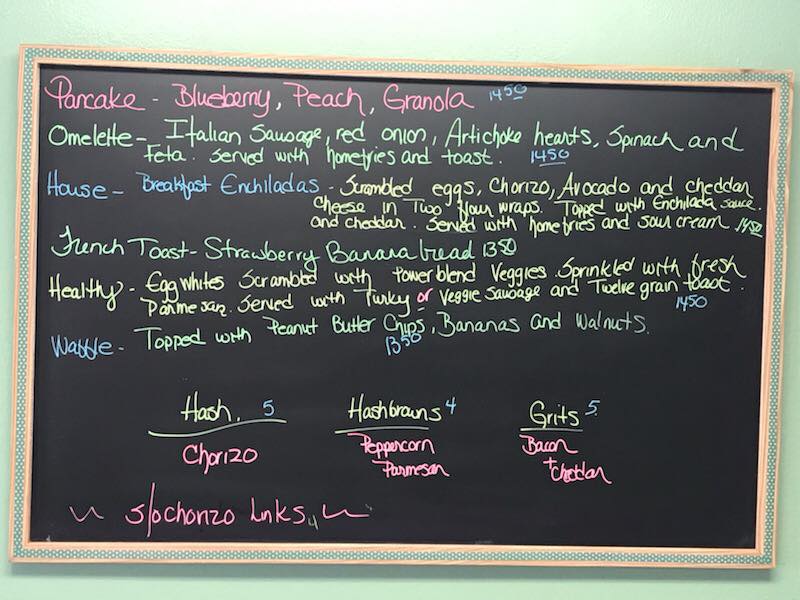 Pancake - Blueberry, Peach, Granola 1450
Omelette - Italian Sausage, red onion, Artichoke hearts, Spinach and
Feta. Served with homefries and toast. 1450
House - Breakfast Enchiladas - Scrambled eggs, Chorizo, Avocado and cheddar
cheese in Two flour wraps. Topped with Enchilada sauce.
and cheddar. Served with homefries and sour cream 1450
French Toast - Strawberry Banana bread 1350
Healthy - Egg whites Scrambled with Powerblend Veggies. Sprinkled with fresh
Parmesan. Served with Turkey or Veggie Sausage and Twelve grain toast.
1450
Waffle - Topped with Peanut Butter Chips, Bananas and Walnuts.
1350
Hash. 5 Hashbrowns 4 Grits 5
Chorizo Peppercorn Bacon
Parmesan + cheddar
s/o chorizo Links 4